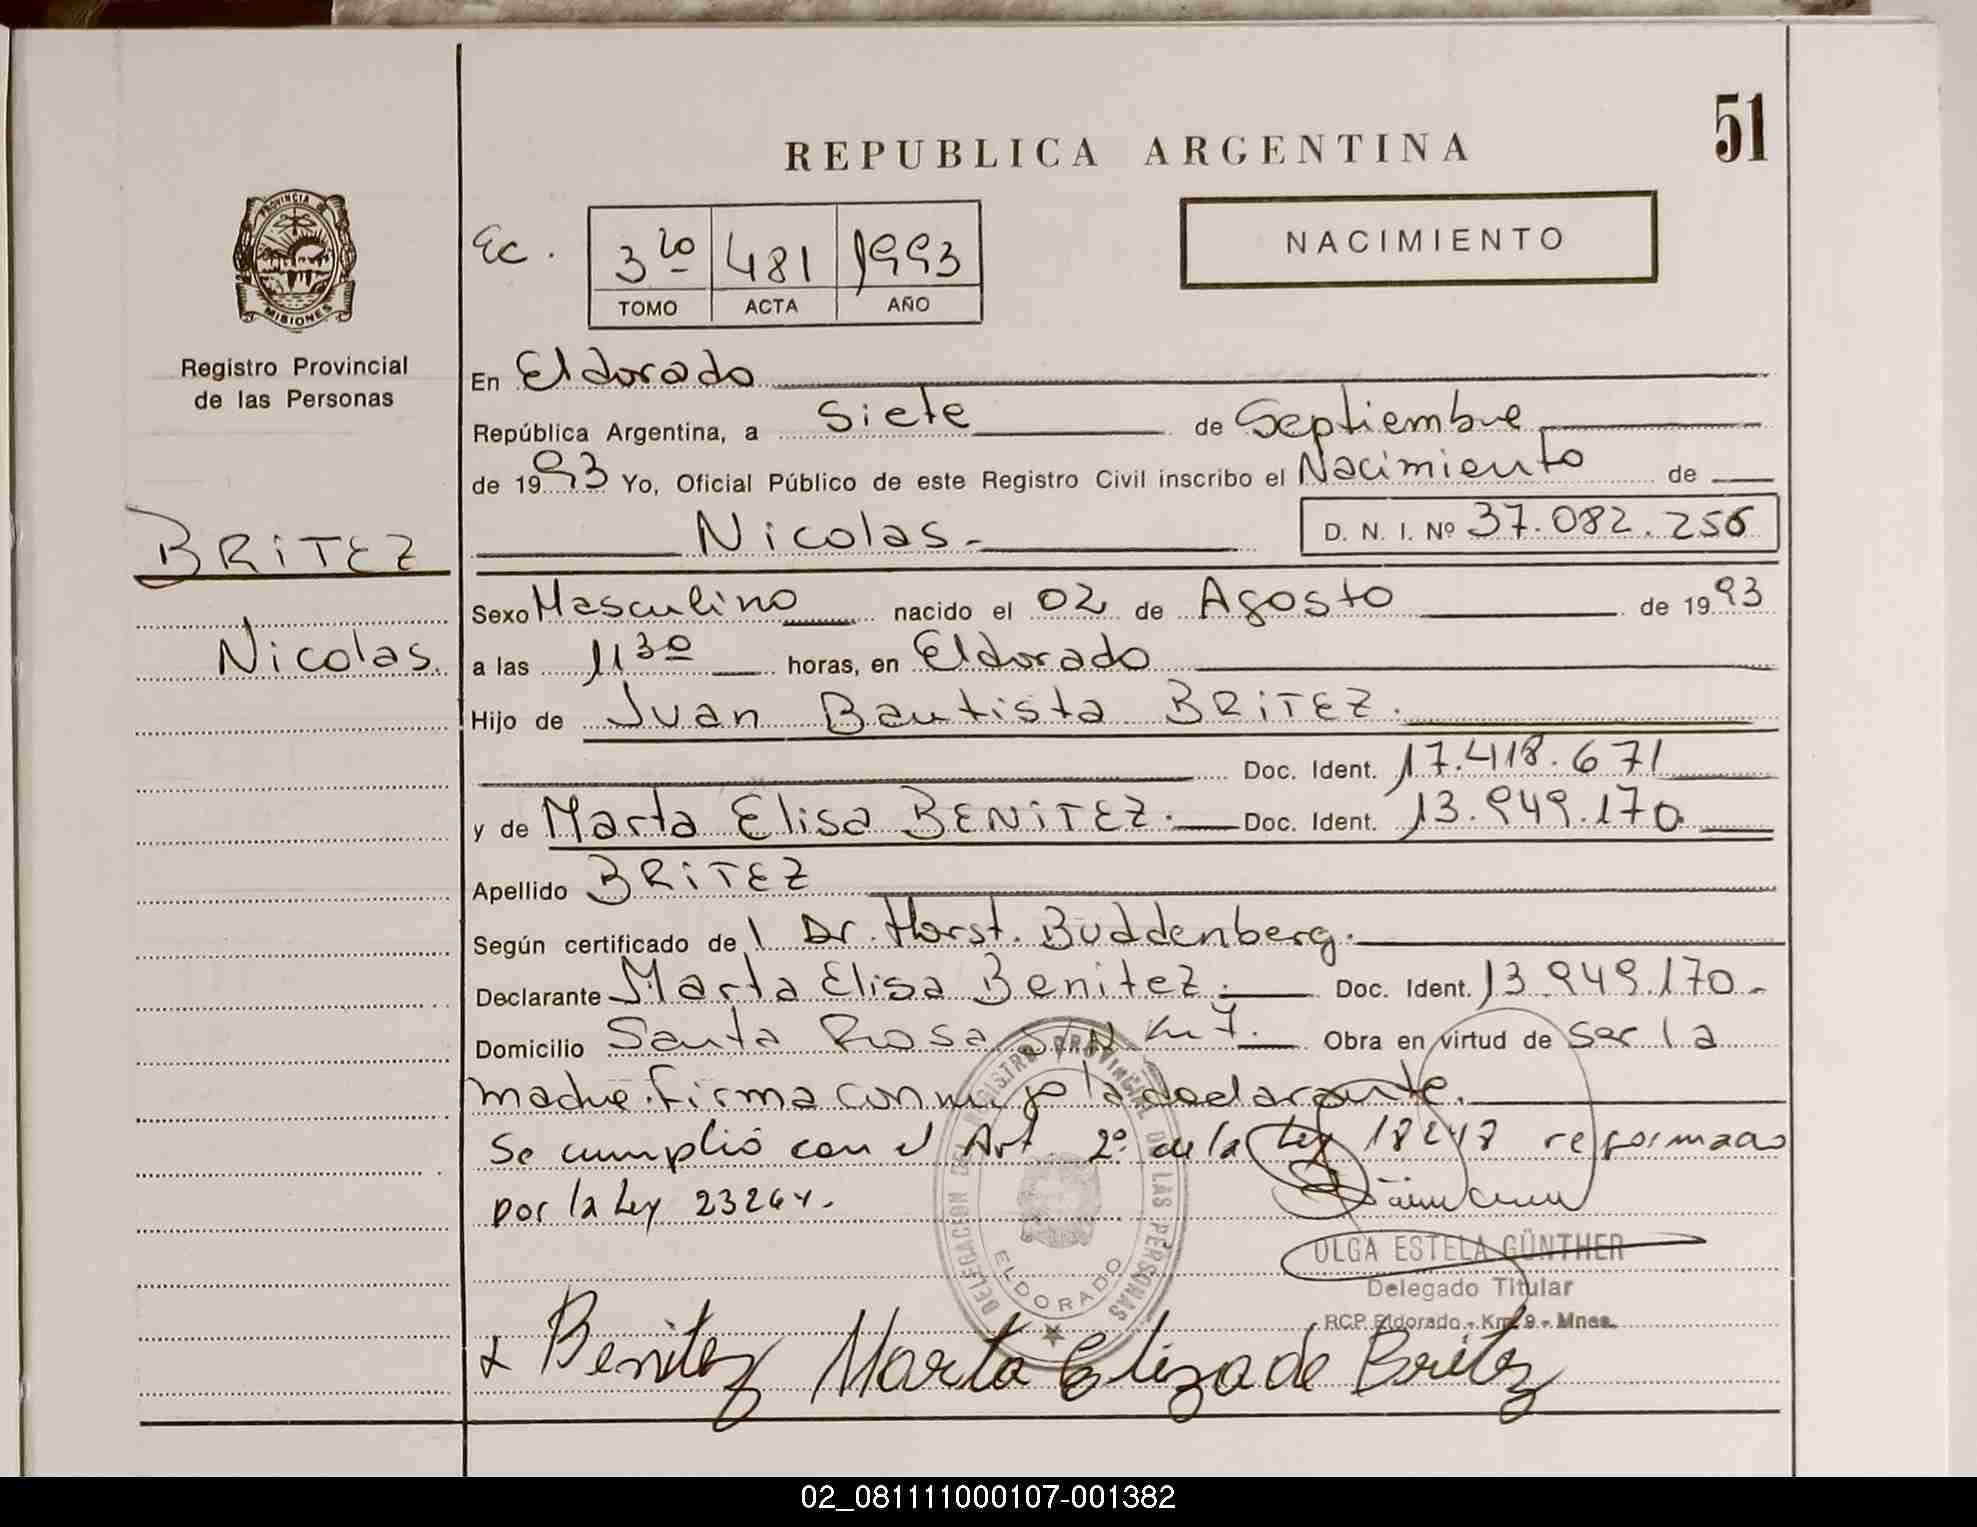 51
REPUBLICA ARGENTINA
NACIMIENTO
PROVINCIA DE
MISIONES
Registro Provincial
de las Personas
Ec.
3ro 481 1993
TOMO ACTA AÑO
BRITEZ
Nicolas.
En Eldorado
República Argentina, a Siete de Septiembre
de 1993 Yo, Oficial Público de este Registro Civil inscribo el Nacimiento de
Nicolas.- D. N. I. Nº 37.082.256
Sexo Masculino nacido el 02 de Agosto de 1993
a las 11 30 horas, en Eldorado
Hijo de Juan Bautista BRITEZ.
Doc. Ident. 17.418.671
y de Marta Elisa BENITEZ. Doc. Ident. 13.949.170
Apellido BRITEZ
Según certificado del Dr. Horst. Buddenberg.
Declarante Marta Elisa Benitez. Doc. Ident. 13.949.170.-
Domicilio Santa Rosa S/N Km 7. Obra en virtud de ser la
madre. firma conmigo la declarante.
Se cumplió con el Art 2º de la Ley 18248 reformado
por la Ley 23264.-
DELEGACION DEL REGISTRO PROVINCIAL DE LAS PERSONAS
ELDORADO
OLGA ESTELA GÜNTHER
Delegado Titular
RCP Eldorado - Km. 9 - Mnes.
x Benitez Marta Eliza de Britez
02_081111000107-001382